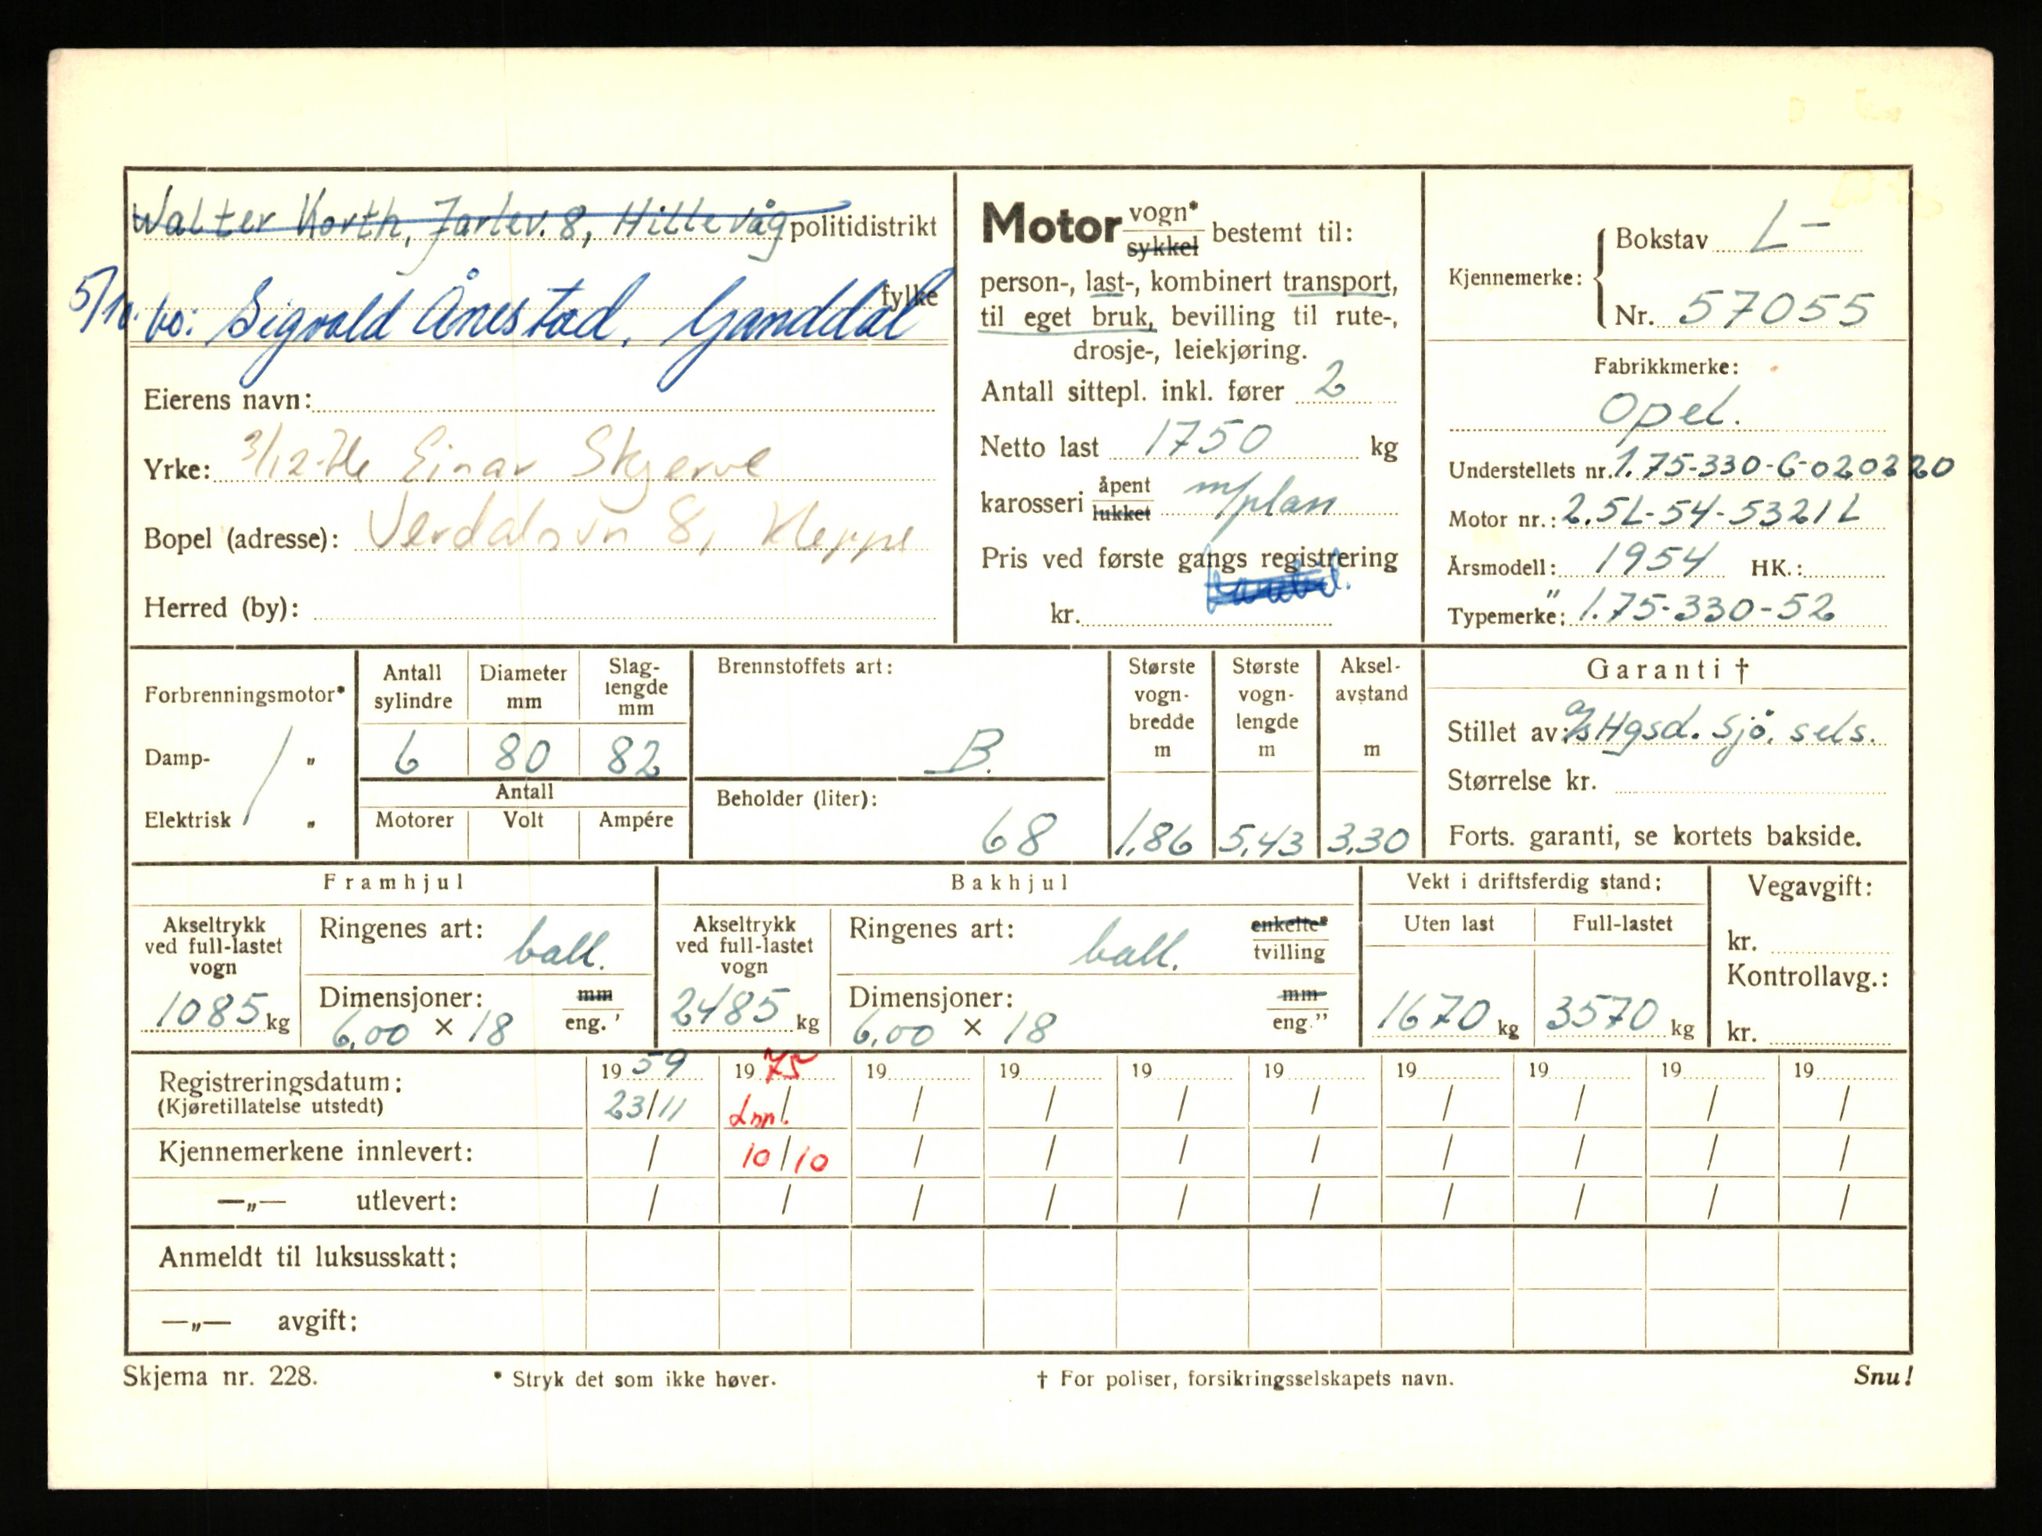 Walter Korth, Jarlev. 8, Hillevåg politidistrikt
5/10. bo: Sigvald Ånestad, Ganddal fylke
Eierens navn:
Yrke: 3/12- Einar Skjerve
Bopel (adresse): Verdalsvn 8, Kleppe
Herred (by):
Motor vogn* sykkel bestemt til:
person-, last-, kombinert transport,
til eget bruk, bevilling til rute-,
drosje-, leiekjøring.
Antall sittepl. inkl. fører 2
Netto last 1750 kg
karosseri åpent lukket m/plan
Pris ved første gangs registrering
kr.
Kjennemerke: Bokstav L-
Nr. 57055
Fabrikkmerke:
Opel.
Understellets nr. 1.75-330-6-020220
Motor nr.: 2.5L-54-5321L
Årsmodell: 1954 HK.:
Typemerke: 1.75-330-52
Forbrenningsmotor*
Damp- „
Elektrisk „
Antall sylindre
Diameter mm
Slag-lengde mm
6 80 82
Antall
Motorer Volt Ampére
Brennstoffets art:
B.
Beholder (liter):
68
Største vogn-bredde m
1,86
Største vogn-lengde m
5,43
Aksel-avstand m
3,30
Garanti †
Stillet av: a/s Hgsd. Sjø. sels.
Størrelse kr.
Forts. garanti, se kortets bakside.
Framhjul
Akseltrykk ved full-lastet vogn
1085 kg
Ringenes art: ball.
Dimensjoner: mm
6,00 × 18 eng. '
Bakhjul
Akseltrykk ved full-lastet vogn
2485 kg
Ringenes art: ball. enkelte* tvilling
Dimensjoner: mm
6,00 × 18 eng."
Vekt i driftsferdig stand:
Uten last Full-lastet
1670 kg 3570 kg
Vegavgift:
kr.
Kontrollavg.:
kr.
Registreringsdatum: 19 59 19 75 19 19 19 19 19 19 19 19
(Kjøretillatelse utstedt) 23/11 Innl. / / / / / / / / /
Kjennemerkene innlevert: / 10/10 / / / / / / / /
—„— utlevert: / / / / / / / / / /
Anmeldt til luksusskatt:
—„— avgift:
Skjema nr. 228. * Stryk det som ikke høver. † For poliser, forsikringsselskapets navn. Snu!